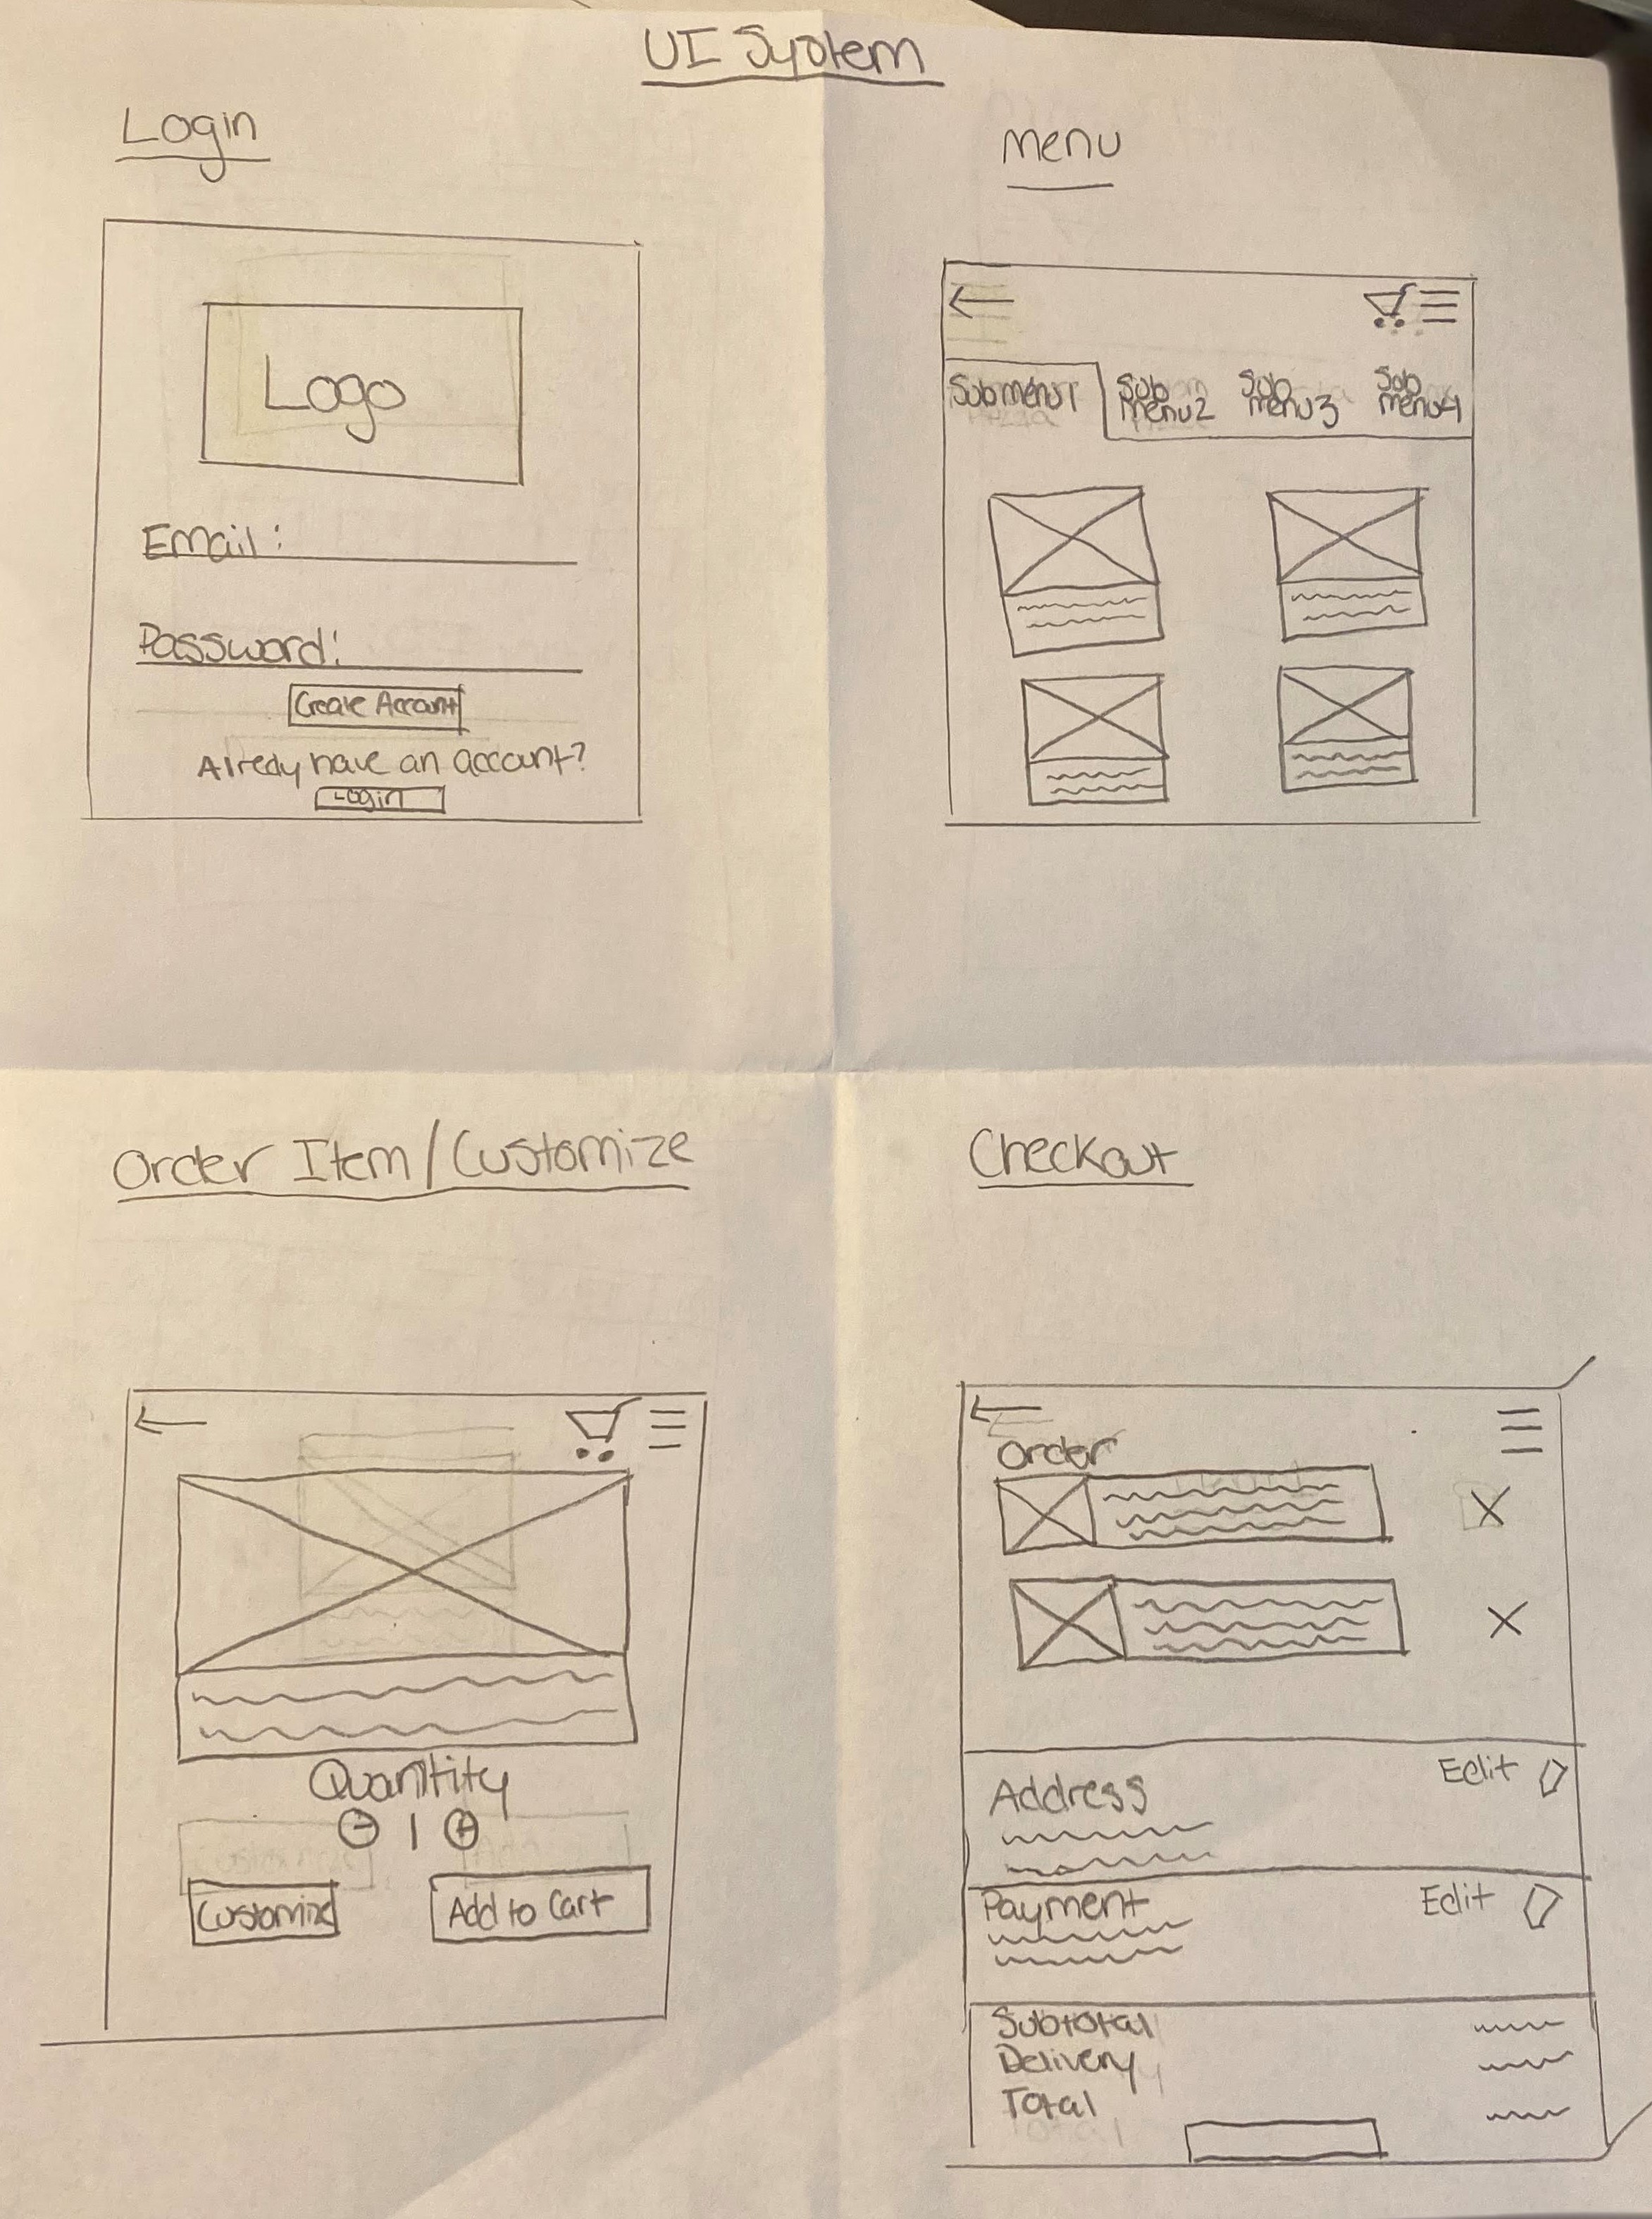 UI System
Login
Logo
Email:
Password:
Create Account
Alredy have an account?
Login
Menu
Submenu1
Sub
menu2
Sub
menu3
Sub
menu4
Order Item/Customize
Quantity
- 1 +
Customize
Add to Cart
Checkout
Order
Address
Edit
Payment
Edit
Subtotal
Delivery
Total